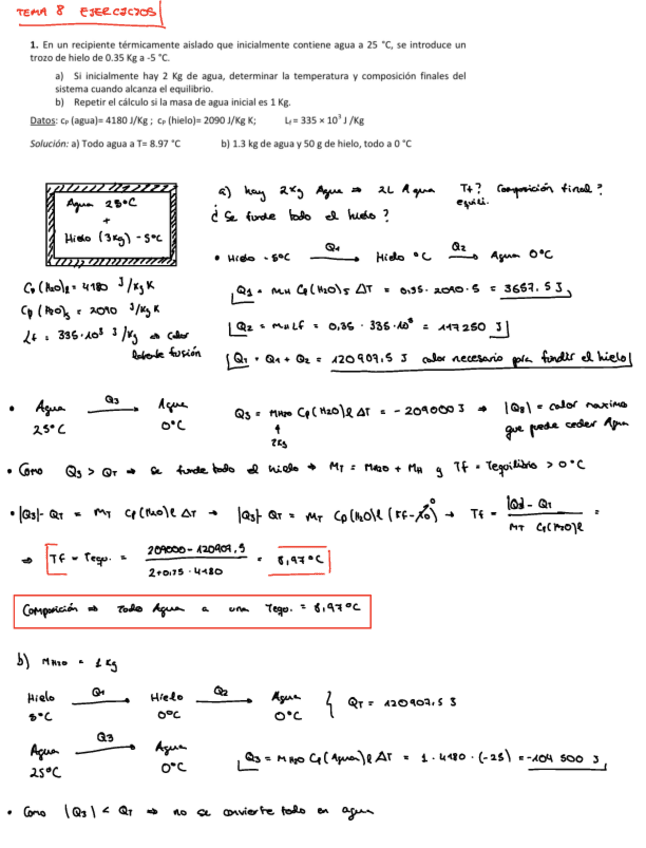 TEMA 8 EJERCICIOS
1. En un recipiente térmicamente aislado que inicialmente contiene agua a 25 °C, se introduce un
trozo de hielo de 0.35 Kg a -5 °C.
a) Si inicialmente hay 2 Kg de agua, determinar la temperatura y composición finales del
sistema cuando alcanza el equilibrio.
b) Repetir el cálculo si la masa de agua inicial es 1 Kg.
Datos: cP (agua)= 4180 J/Kg ; cP (hielo)= 2090 J/Kg K; Lf = 335 × 10³ J /Kg
Solución: a) Todo agua a T= 8.97 °C b) 1.3 kg de agua y 50 g de hielo, todo a 0 °C
Agua 25°C
+
Hielo (3Kg) -5°C
a) hay 2Kg Agua ⇒ 2L Agua Tf? Composición final?
equili.
¿Se funde todo el hielo?
• Hielo -5°C Q1 → Hielo °C Q2 → Agua 0°C
Cp (H2O)l = 4180 J/Kg K
Cp (H2O)s = 2090 J/Kg K
Lf = 335·10³ J/Kg ⇒ Calor
latente fusión
Q1 = MH Cp(H2O)s ΔT = 0,35 · 2090 · 5 = 3657,5 J
Q2 = MH Lf = 0,35 · 335·10³ = 117250 J
QT = Q1 + Q2 = 120907,5 J calor necesario para fundir el hielo
• Agua 25°C Q3 → Agua 0°C
Q3 = MH2O Cp(H2O)l ΔT = -209000 J ⇒ |Q3| = calor maximo
que puede ceder Agua
2Kg
• Como Q3 > QT ⇒ se funde todo el hielo ⇒ MT = MH2O + MH y Tf = Tequilibrio > 0°C
• |Q3| - QT = MT Cp(H2O)l ΔT → |Q3| - QT = MT Cp(H2O)l (Tf - T0) 0 → Tf = |Q3| - QT / MT Cp(H2O)l =
⇒ Tf = Tequ. = 209000 - 120907,5 / 2+0,35 · 4180 = 8,97°C
Composición ⇒ Todo Agua a una Tequ. = 8,97°C
b) MH2O = 1 Kg
Hielo 5°C Q1 → Hielo 0°C Q2 → Agua 0°C { QT = 120907,5 J
Agua 25°C Q3 → Agua 0°C
Q3 = MH2O Cp(Agua)l ΔT = 1 · 4180 · (-25) = -104 500 J
• Como |Q3| < QT ⇒ no se convierte todo en agua